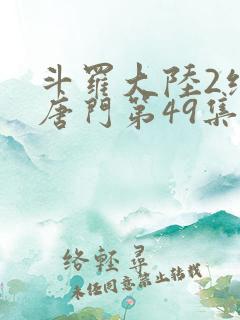 斗羅大陸2絕
唐門第49集
絡輕尋
未任同意禁止轉載